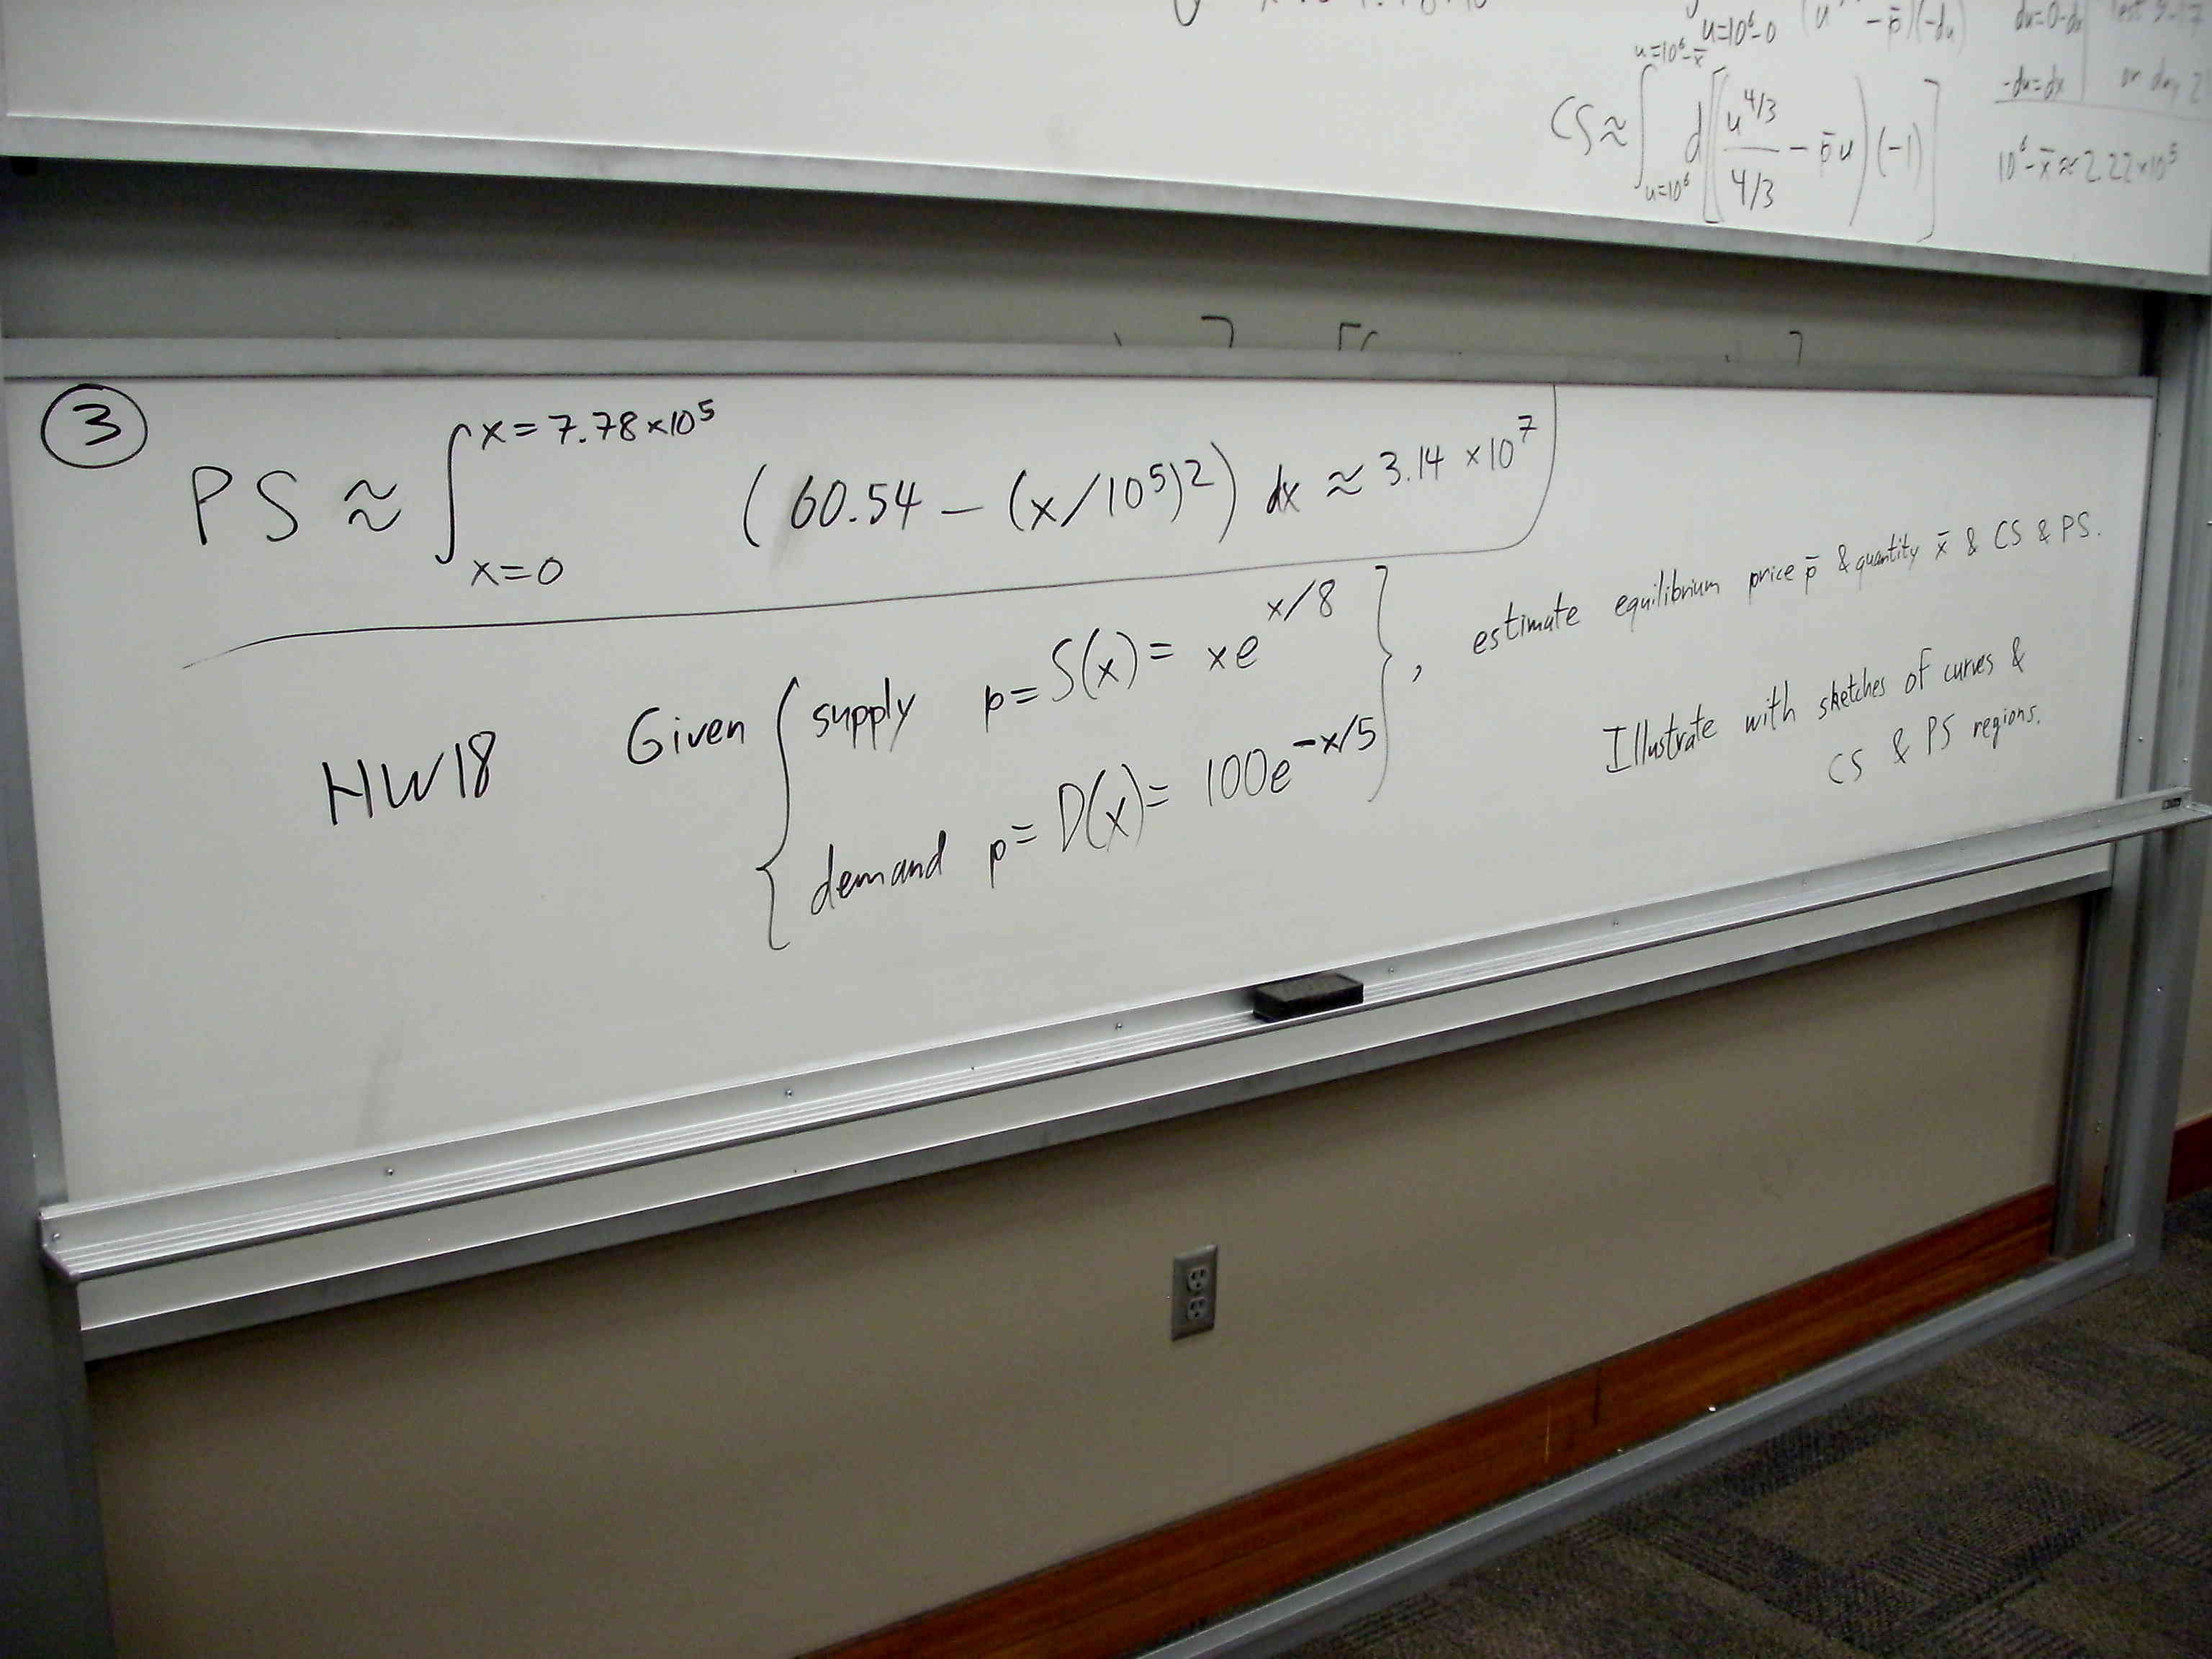 u=10⁶-0 - p̄)(-du) du=0-dx
u=10⁶-x̄
-du=dx or day 2
CS≈∫ d[(u^{4/3}/(4/3) - p̄u)(-1)]
u=10⁶
10⁶-x̄≈2.22×10⁵
③
x=7.78×10⁵
PS ≈ ∫ (60.54 - (x/10⁵)²) dx ≈ 3.14 ×10⁷
x=0
HW18 Given { supply p=S(x)= xe^{x/8}
demand p=D(x)= 100e^{-x/5} } ,
estimate equilibrium price p̄ & quantity x̄ & CS & PS.
Illustrate with sketches of curves &
CS & PS regions.